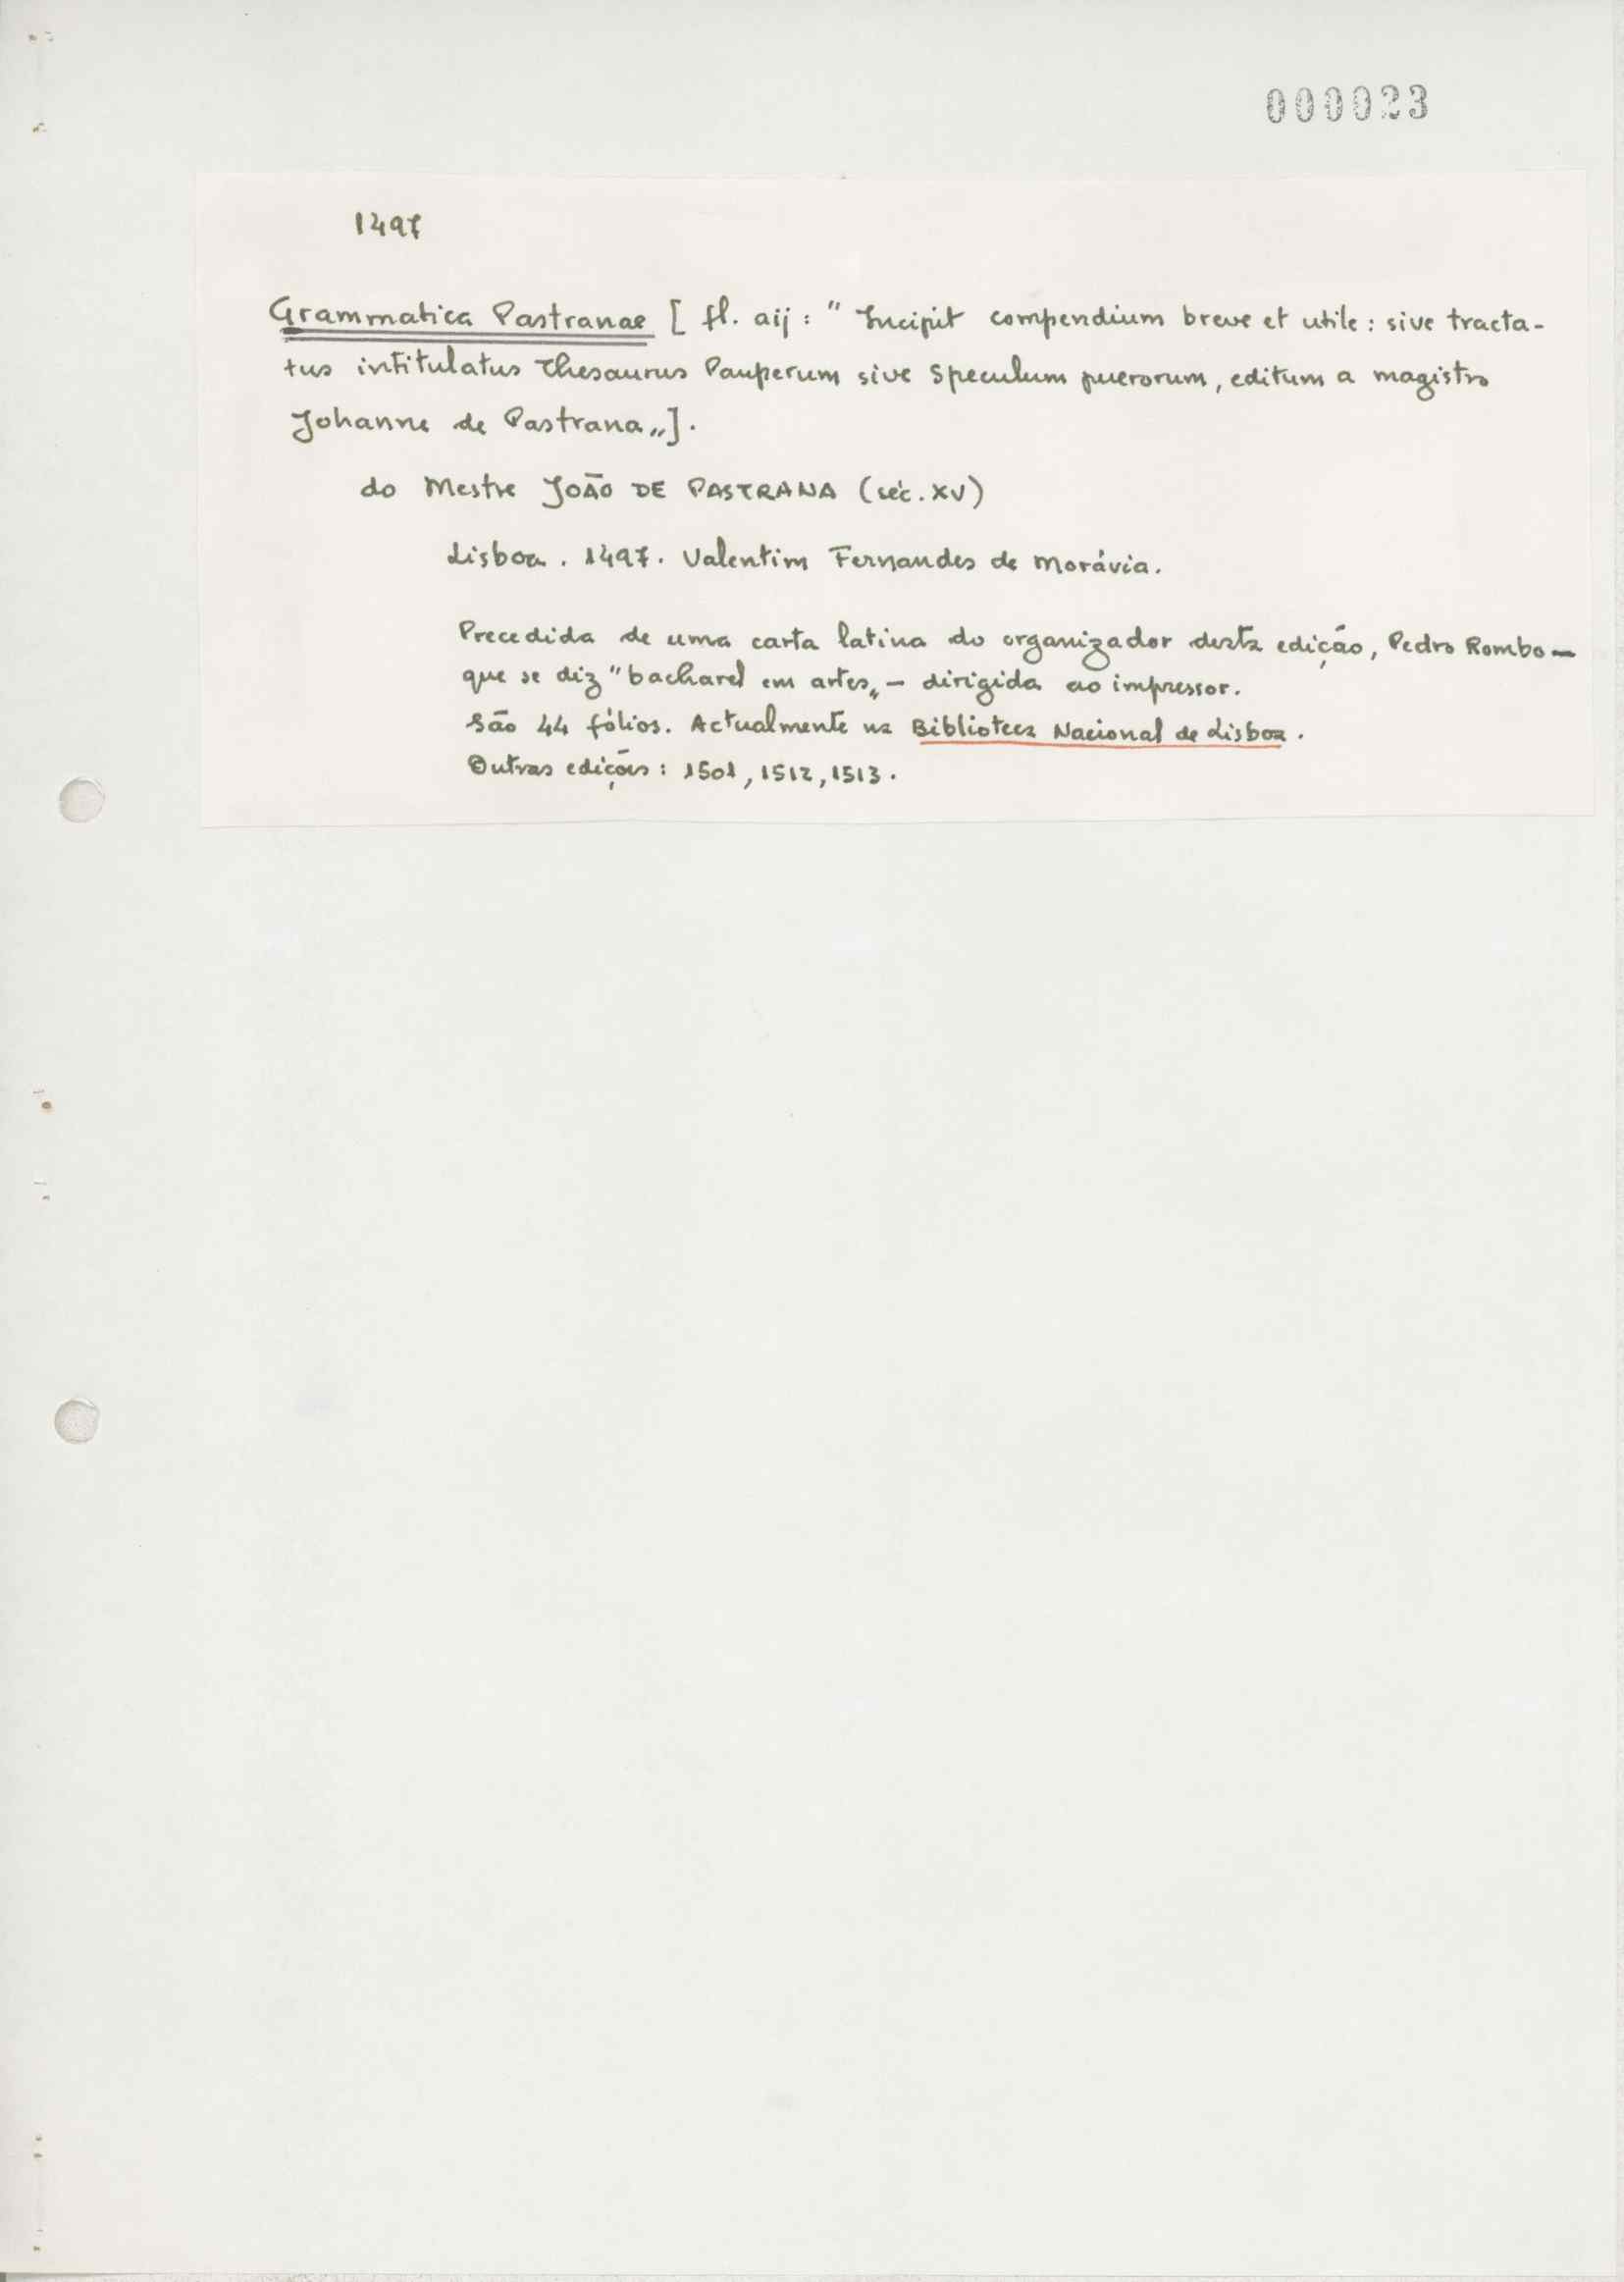 000023
1497
Grammatica Pastranae [ fl. aij : " Incipit compendium breve et utile : sive tracta-
tus intitulatus Thesaurus Pauperum sive Speculum puerorum, editum a magistro
Johanne de Pastrana „].
do Mestre JOÃO DE PASTRANA (séc. XV)
Lisboa . 1497. Valentim Fernandes de Morávia.
Precedida de uma carta latina do organizador desta edição, Pedro Rombo —
que se diz "bacharel em artes„ — dirigida ao impressor.
São 44 fólios. Actualmente na Biblioteca Nacional de Lisboa .
Outras edições : 1501, 1512, 1513 .